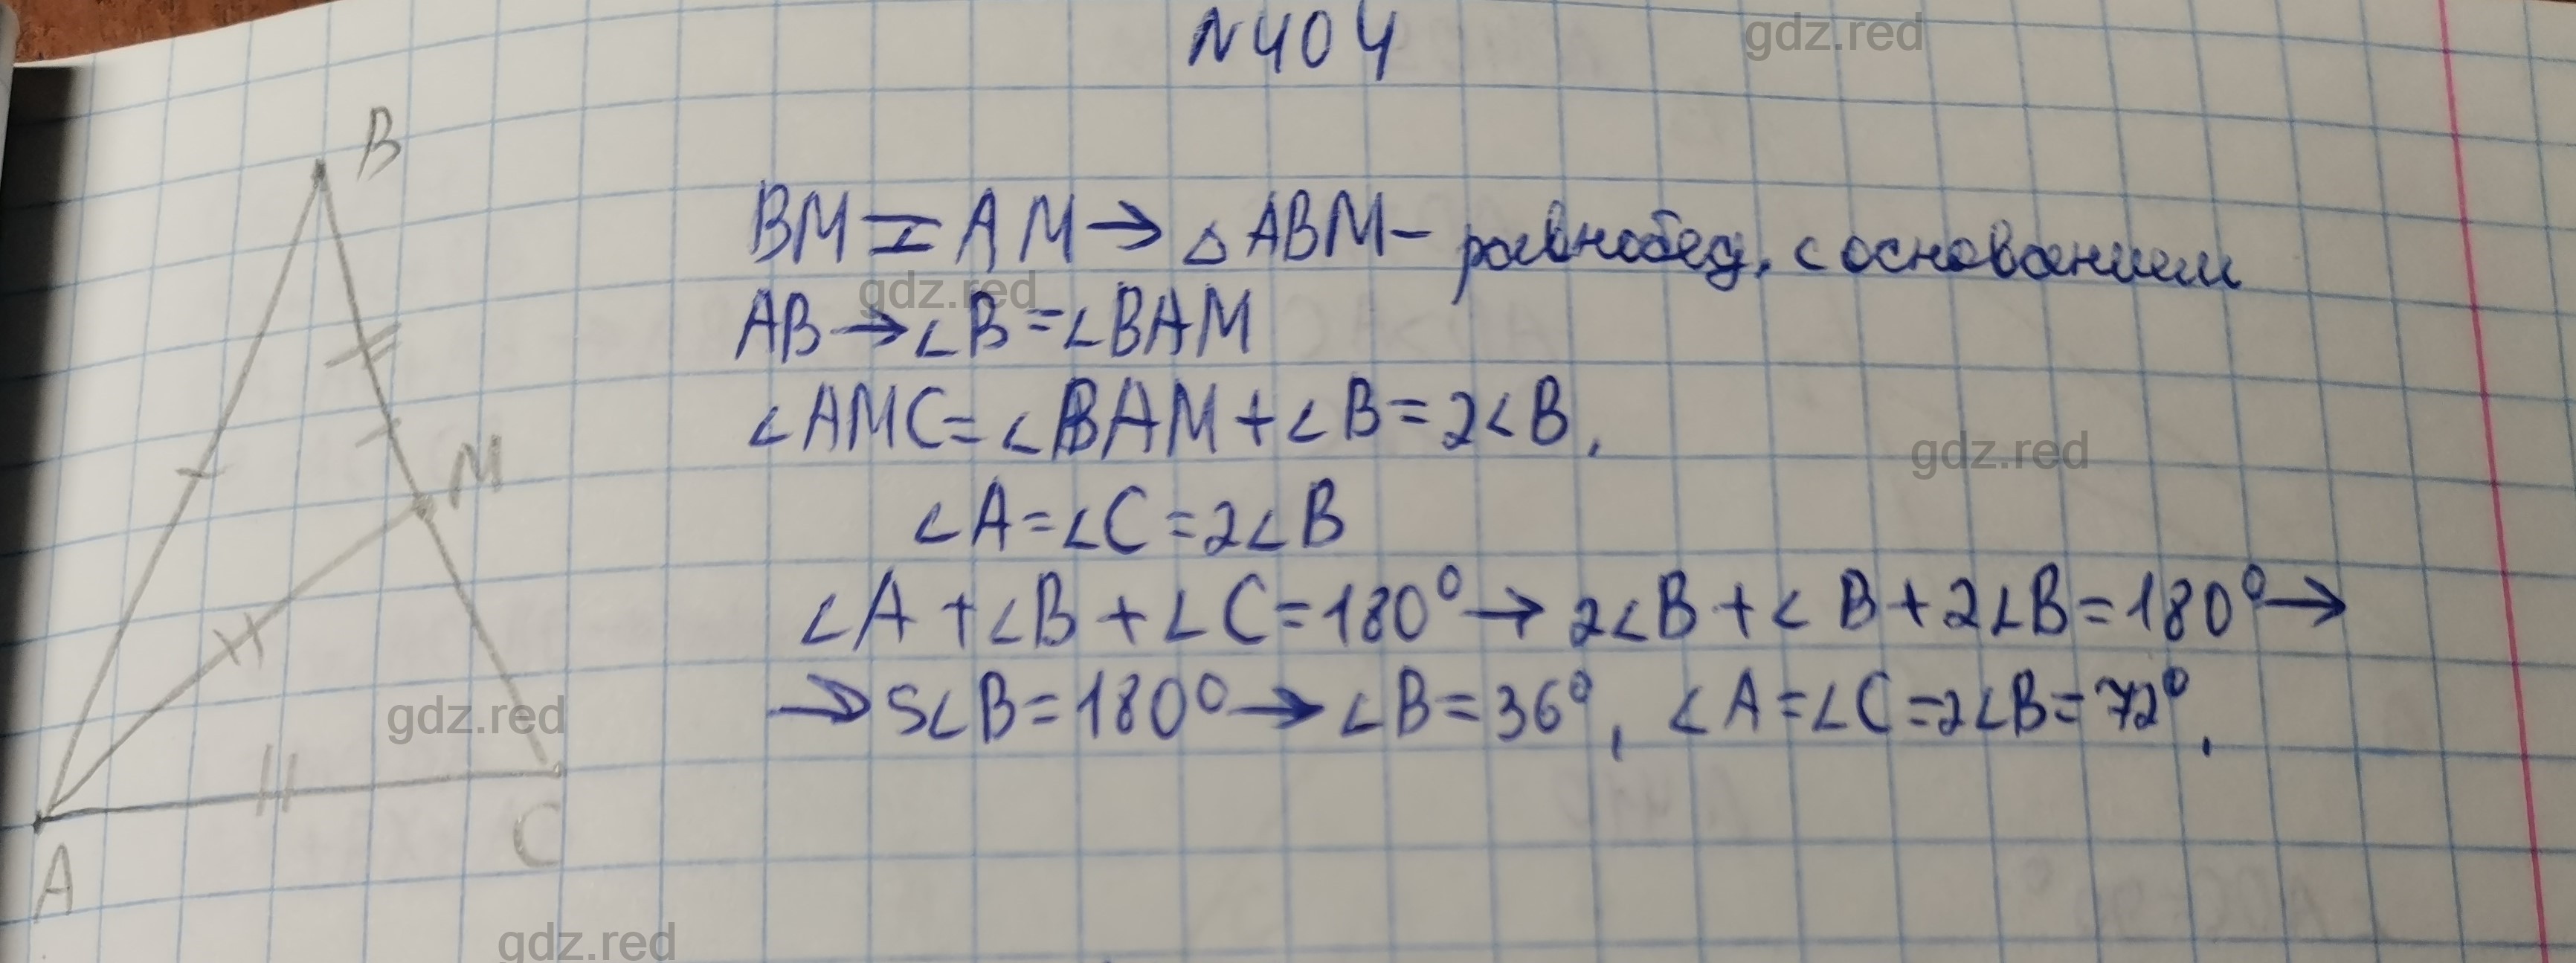 N404
gdz.red
B
BM = AM → △ABM – равнобед. с основанием
gdz.red
AB → ∠B = ∠BAM
∠AMC = ∠BAM + ∠B = 2∠B,
gdz.red
M
∠A = ∠C = 2∠B
∠A + ∠B + ∠C = 180° → 2∠B + ∠B + 2∠B = 180° →
→ 5∠B = 180° → ∠B = 36°, ∠A = ∠C = 2∠B = 72°,
gdz.red
C
A
gdz.red